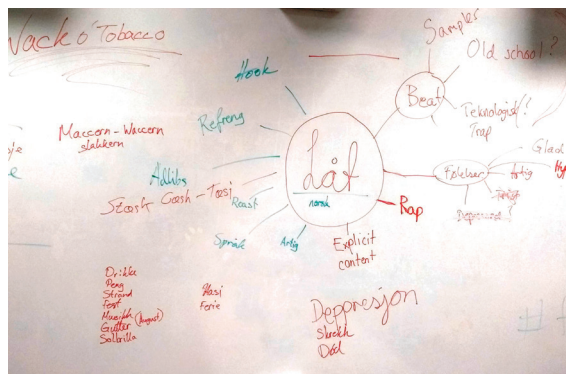 Wack o' Tobacco
Sampler
Old school?
Beat
Teknologisk?
Trap
Hook
Refreng
Maccern - Waccern
slakkern
Adlibs
Stack Cash - Tasi
Roast
Språk
Artig
Låt
norsk
Rap
Explicit
content
Følelser
Glad
Artig
Hy
Trist
Depressed?
Drikke
Peng
Strand
fest
Musikk
Gutter (August)
Solbrilla
Hasi
Ferie
Deppresjon
Shrekk
Død
#